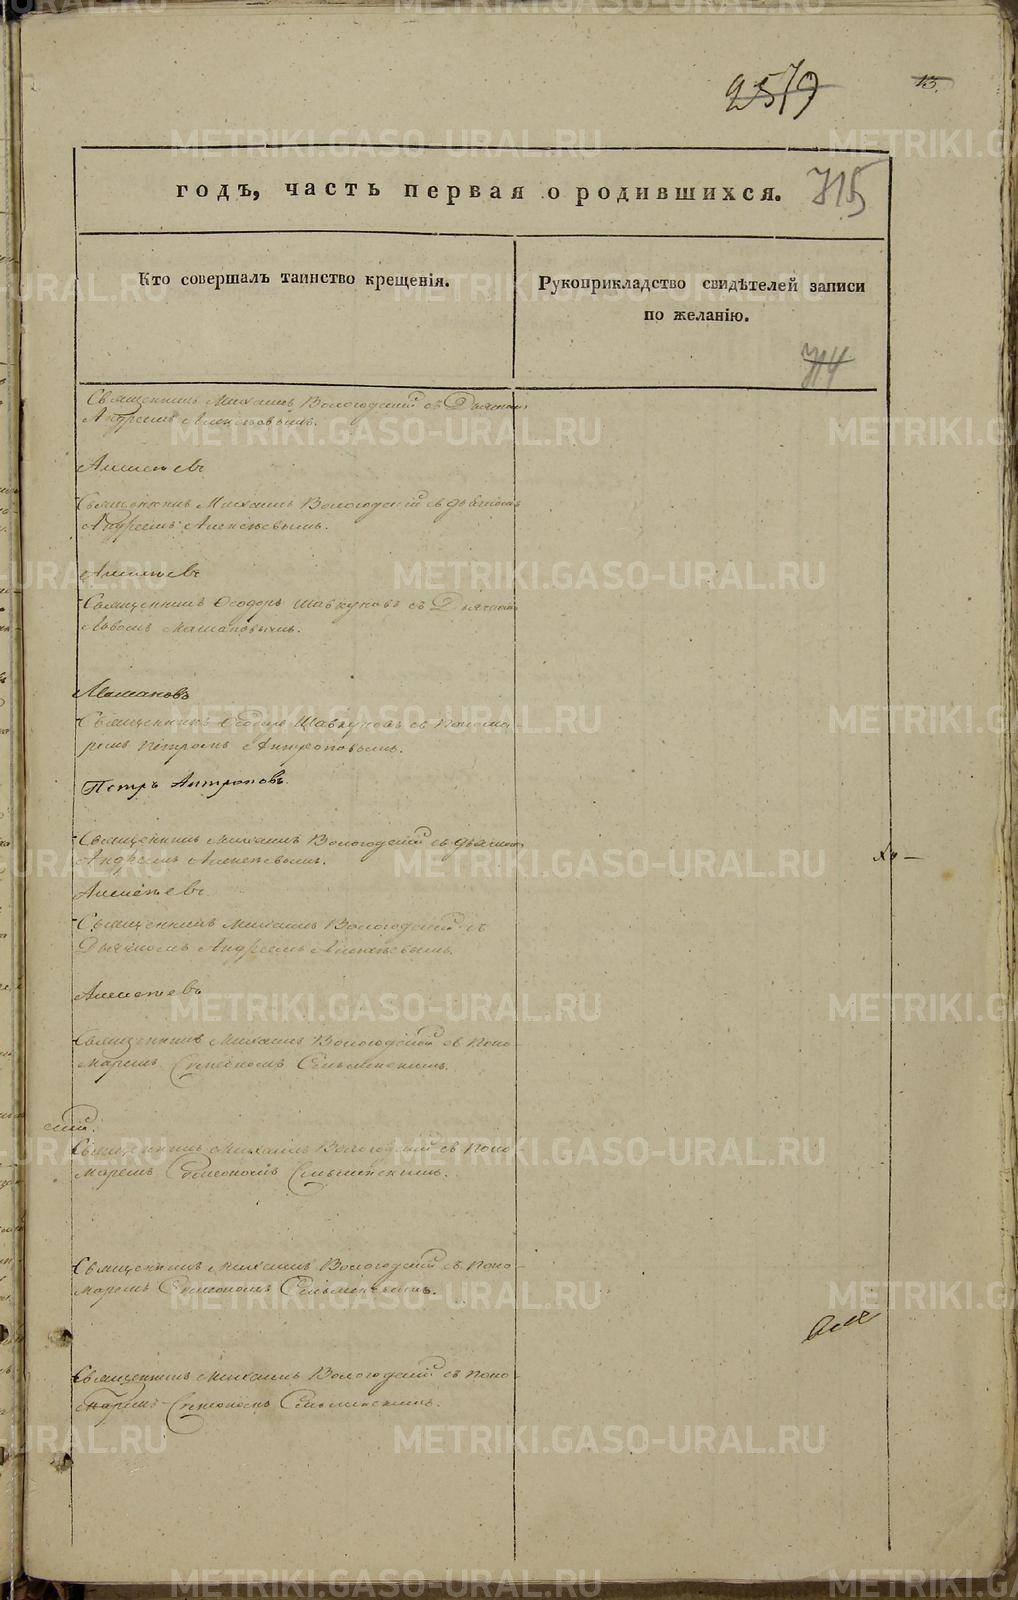 2579
13.
годъ, часть первая о родившихся.
715
Кто совершалъ таинство крещенія.
Рукоприкладство свидѣтелей записи
по желанію.
714
Священникъ Михаилъ Вологодскій съ Дьячкомъ
Андреемъ Алексѣевымъ.
Алексѣевъ
Священникъ Михаилъ Вологодскій съ дьячкомъ
Андреемъ Алексѣевымъ.
Алексѣевъ
Священникъ Ѳеодоръ Шавкуновъ съ Дьячкомъ
Львомъ
Священникъ Ѳеодоръ Шавкуновъ съ понома-
ремъ Петромъ Антроповымъ.
Петръ Антроповъ.
Священникъ Михаилъ Вологодскій съ дьячкомъ
Андреемъ Алексѣевымъ.
Алексѣевъ
Священникъ Михаилъ Вологодскій съ
Дьячкомъ Андреемъ Алексѣевымъ.
Алексѣевъ
Священникъ Михаилъ Вологодскій съ поно-
маремъ Симеономъ
скій.
Священникъ Михаилъ Вологодскій съ поно-
маремъ Симеономъ
Священникъ Михаилъ Вологодскій съ поно-
маремъ Симеономъ
Священникъ Михаилъ Вологодскій съ поно-
маремъ Симеономъ
METRIKI.GASO-URAL.RU